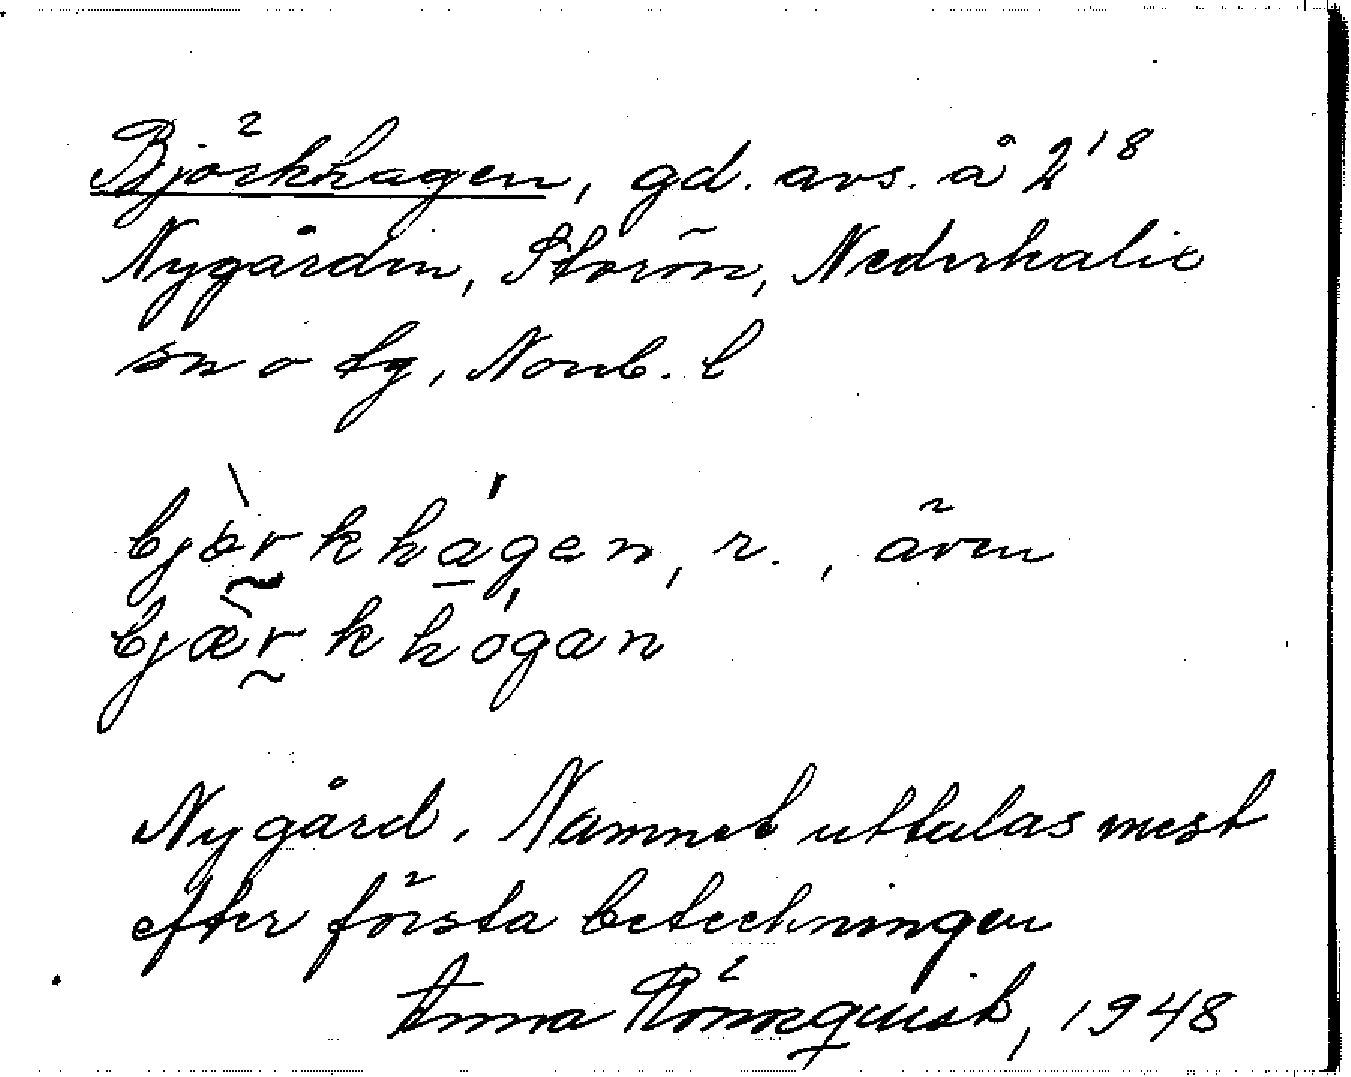 Björkhagen, gd. avs. å 2¹⁸
Nygården, Storön, Nederkalix
sn o tg, Norrb. l
bjòrkhágen, r., även
bjæ̀rkhógan
Nygård. Namnet uttalas mest
efter första beteckningen
Anna Rönnquist, 1948